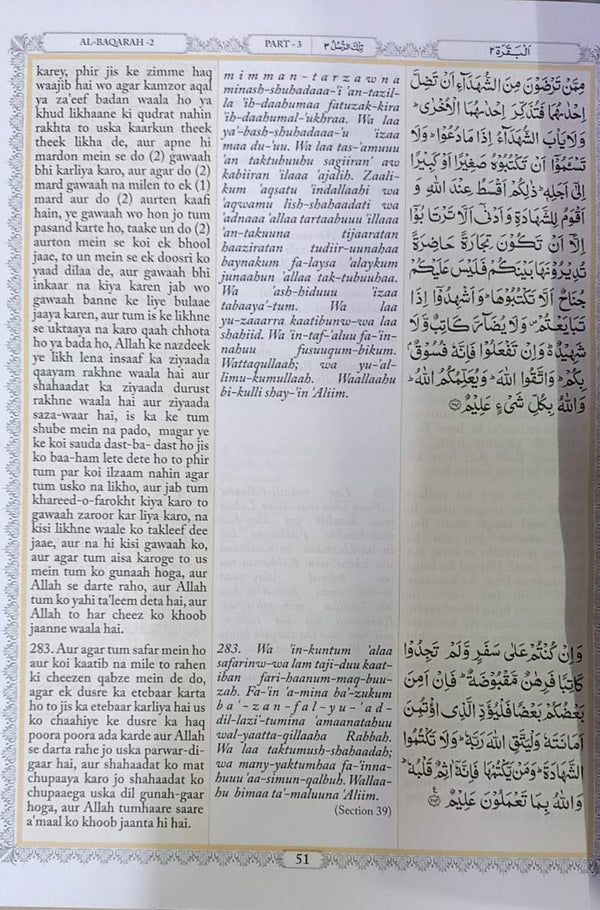 AL-BAQARAH -2
PART - 3 تِلْكَ الرُّسُلُ ٣
اَلْبَقَرَة ٢
karey, phir jis ke zimme haq
waajib hai wo agar kamzor aqal
ya za'eef badan waala ho ya
khud likhaane ki qudrat nahin
rakhta to uska kaarkun theek
theek likha de, aur apne hi
mardon mein se do (2) gawaah
bhi karliya karo, aur agar do (2)
mard gawaah na milen to ek (1)
mard aur do (2) aurten kaafi
hain, ye gawaah wo hon jo tum
pasand karte ho, taake un do (2)
aurton mein se ek bhool
jaae, to un mein se ek doosri ko
yaad dilaa de, aur gawaah bhi
inkaar na kiya karen jab wo
gawaah banne ke liye bulaae
jaaya karen, aur tum is ke likhne
se uktaaya na karo qaah chhota
ho ya bada ho, Allah ke nazdeek
ye likh lena insaaf ka ziyaada
qaayam rakhne waala hai aur
shahaadat ka ziyaada durust
rakhne waala hai aur ziyaada
saza-waar hai, is ka ke tum
shube mein na pado, magar ye
ke koi sauda dast-ba- dast ho jis
ko baa-ham lete dete ho to phir
tum par koi ilzaam nahin agar
tum usko na likho, aur jab tum
khareed-o-farokht kiya karo to
gawaah zaroor kar liya karo, na
kisi likhne waale ko takleef dee
jaae, aur na hi kisi gawaah ko,
aur agar tum aisa karoge to us
mein tum ko gunaah hoga, aur
Allah se darte raho, aur Allah
tum ko yahi ta'leem deta hai, aur
Allah to har cheez ko khoob
jaanne waala hai.
mimman-tarzawna
minash-shuhadaaa-'i 'an-tazil-
la 'ih-daahumaa fatuzak-kira
'ih-daahumal-'ukhraa. Wa laa
ya'-bash-shuhadaaa-'u 'izaa
maa du-'uu. Wa laa tas-'amuuu
'an taktubuuhu sagiiran' aw
kabiiran 'ilaaa 'ajalih. Zaali-
kum 'aqsatu 'indallaahi wa
'aqwamu lish-shahaadati wa
'adnaaa 'allaa tartaabuuu 'illaaa
'an-takuuna tijaaratan
haaziratan tudiir-uunahaa
baynakum fa-laysa 'alaykum
junaahun 'allaa tak-tubuuhaa.
Wa 'ash-hiduuu 'izaa
tabaaya'-tum. Wa laa
yu-zaaarra kaatibunw-wa laa
shahiid. Wa 'in-taf-'aluu fa-'in-
nahuu fusuuqum-bikum.
Wattaqullaah; wa yu-'al-
limu-kumullaah. Waallaahu
bi-kulli shay-'in 'Aliim.
مِمَّنْ تَرْضَوْنَ مِنَ الشُّهَدَآءِ اَنْ تَضِلَّ
اِحْدٰىهُمَا فَتُذَكِّرَ اِحْدٰىهُمَا الْاُخْرٰى ؕ
وَلَا یَاْبَ الشُّهَدَآءُ اِذَا مَا دُعُوْا ؕ وَلَا
تَسْـَٔمُوْۤا اَنْ تَكْتُبُوْهُ صَغِیْرًا اَوْ كَبِیْرًا
اِلٰۤى اَجَلِهٖ ؕ ذٰلِكُمْ اَقْسَطُ عِنْدَ اللّٰهِ وَ
اَقْوَمُ لِلشَّهَادَةِ وَاَدْنٰۤى اَلَّا تَرْتَابُوْۤا
اِلَّاۤ اَنْ تَكُوْنَ تِجَارَةً حَاضِرَةً
تُدِیْرُوْنَهَا بَیْنَكُمْ فَلَیْسَ عَلَیْكُمْ
جُنَاحٌ اَلَّا تَكْتُبُوْهَا ؕ وَاَشْهِدُوْۤا اِذَا
تَبَایَعْتُمْ ۪ وَلَا یُضَآرَّ كَاتِبٌ وَّلَا
شَهِیْدٌ ؕ۬ وَاِنْ تَفْعَلُوْا فَاِنَّهٗ فُسُوْقٌۢ
بِكُمْ ؕ وَاتَّقُوا اللّٰهَ ؕ وَیُعَلِّمُكُمُ اللّٰهُ ؕ
وَاللّٰهُ بِكُلِّ شَیْءٍ عَلِیْمٌ ﴿۲۸۲﴾
283. Aur agar tum safar mein ho
aur koi kaatib na mile to rahen
ki cheezen qabze mein de do,
agar ek dusre ka etebaar karta
ho to jis ka etebaar karliya hai us
ko chaahiye ke dusre ka haq
poora poora ada karde aur Allah
se darta rahe jo uska parwar-di-
gaar hai, aur shahaadat ko mat
chupaaya karo jo shahaadat ko
chupaaega uska dil gunah-gaar
hoga, aur Allah tumhaare saare
a'maal ko khoob jaanta hi hai.
283. Wa 'in-kuntum 'alaa
safarinw-wa lam taji-duu kaat-
iban fari-haanum-maq-buu-
zah. Fa-'in 'a-mina ba'-zukum
ba'-zan-fal-yu-'ad-
dil-lazi'-tumina 'amaanatahuu
wal-yaatta-qillaaha Rabbah.
Wa laa taktumush-shahaadah;
wa many-yaktumhaa fa-'inna-
huuu 'aa-simun-qalbuh. Wallaa-
hu bimaa ta'-maluuna 'Aliim.
(Section 39)
وَاِنْ كُنْتُمْ عَلٰى سَفَرٍ وَّلَمْ تَجِدُوْا
كَاتِبًا فَرِهٰنٌ مَّقْبُوْضَةٌ ؕ فَاِنْ اَمِنَ
بَعْضُكُمْ بَعْضًا فَلْیُؤَدِّ الَّذِی اؤْتُمِنَ
اَمَانَتَهٗ وَلْیَتَّقِ اللّٰهَ رَبَّهٗ ؕ وَلَا تَكْتُمُوا
الشَّهَادَةَ ؕ وَمَنْ یَّكْتُمْهَا فَاِنَّهٗۤ اٰثِمٌ قَلْبُهٗ ؕ
وَاللّٰهُ بِمَا تَعْمَلُوْنَ عَلِیْمٌ ﴿۲۸۳﴾
51